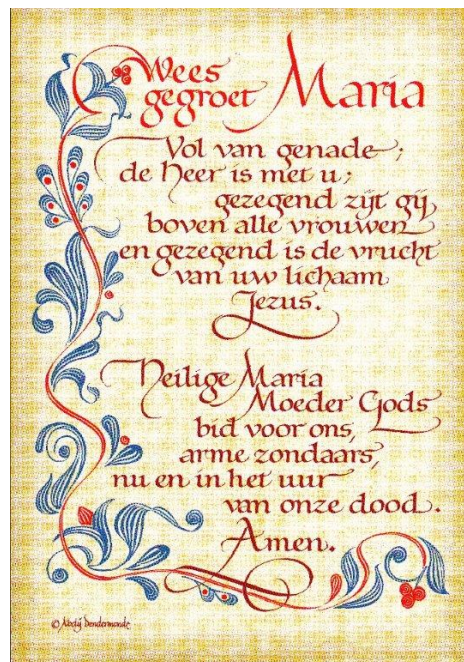 Wees
gegroet Maria
Vol van genade;
de Heer is met u;
gezegend zijt gij
boven alle vrouwen
en gezegend is de vrucht
van uw lichaam
Jezus.
Heilige Maria
Moeder Gods
bid voor ons,
arme zondaars,
nu en in het uur
van onze dood.
Amen.
© Abdij Dendermonde